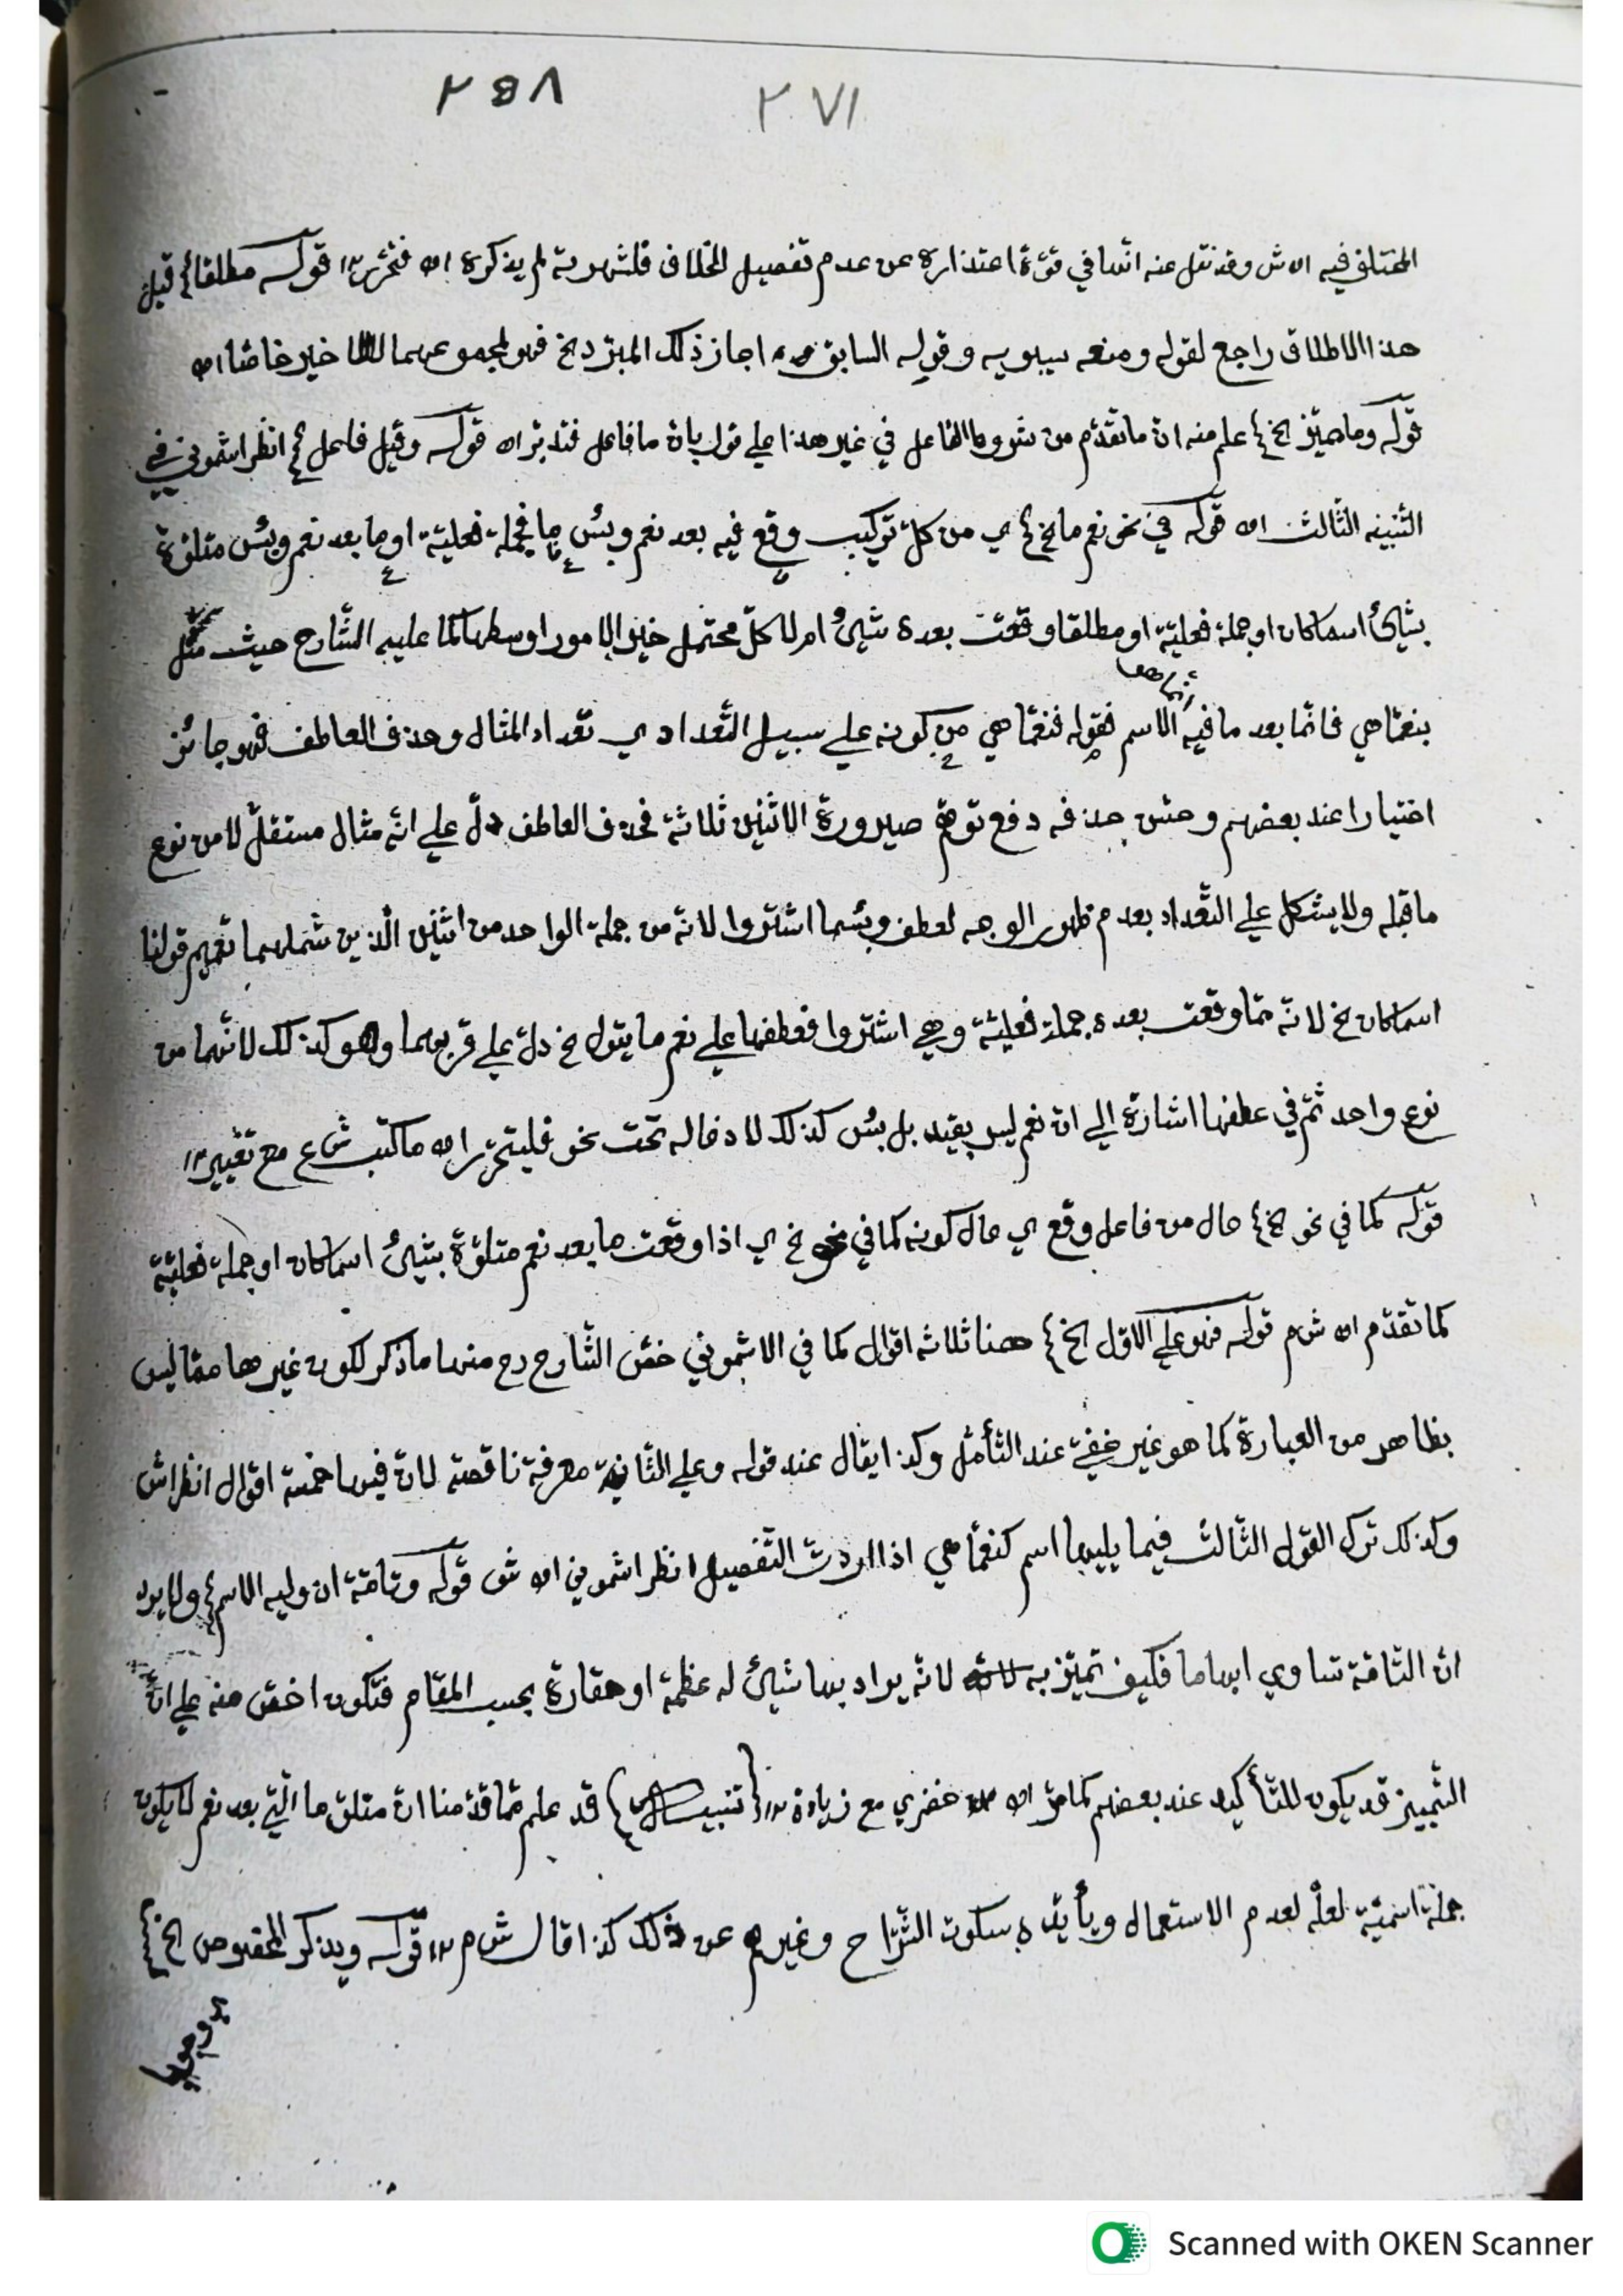 ٢٥٨ ٢٧١
المختلف فيه اه ش وقد نقل عنه انّها في قوّة اعتذاره عن عدم تفصيل الخلاف فلشهرته لم يذكره اه فتحرّر ١٢ قوله مطلقا قيل
هذا الاطلاق راجع لقوله ومنعه سيبويه وقوله السابق اجاز ذلك المبرّد الخ فهو لمجموعهما لا خير خاصّا اه
قوله وما مميّز الخ علم منه انّ ما تقدّم من شروط الفاعل في غير هذا على قول بانّ ما فاعل فتدبّر اه قوله وقيل فاعل انظر اشموني في
التنبيه الثّالث اه قوله في نحو نعم ما الخ ي من كلّ تركيب وقع فيه بعد نعم وبئس ما فجملة فعليّة او ما بعد نعم وبئس متلوّة
بشيئ اسما كان او جملة فعليّة او مطلقا وقعت بعده شيئ ام لا كلّ محتمل خير الامور اوسطها لما عليه الشّارح حيث مثّل
بنعمّا هي فانّما بعد ما فيه الاسم فقوله فنعمّا هي من كونه على سبيل التّعداد ي تعّداد المثال وحذف العاطف فهو جائز
اختيارا عند بعضهم وحسّن حذفه دفع توهّم صيرورة الاثنين ثلاثة فحذف العاطف دلّ على انّه مثال مستقلّ لا من نوع
ما قبله ولا يشكل على التّعداد بعدم ظهور الوجه لعطف وبئسما اشتروا لانّه من جملة الواحد من اثنين الّذين شملهما تعميم قولنا
اسما كان الخ لانّه ممّا وقعت بعده جملة فعليّة وهي اشتروا فعطفها على نعم ما يقول الخ دلّ على قربهما وهو كذلك لانّهما من
نوع واحد ثمّ في عطفها اشارة الى ان نعم ليس بقيد بل بئس كذلك لادخاله تحت نحو فليتحرّر اه ما كتب ش ع مع تغيير ١٢
قوله كما في نحو الخ حال من فاعل وقع ي حال كونه كما في نحو الخ ي اذا وقعت ما بعد نعم متلوّة بشيئ اسما كان او جملة فعليّة
كما تقدّم اه ش م قوله فهو على الاوّل الخ ههنا ثلاثة اقوال كما في الاشموني خصّ الشّارح رح منها ما ذكر لكون غيرها ممّا ليس
بظاهر من العبارة كما هو غير خفيّ عند التّأمّل وكذا يقال عند قوله وعلى الثّانية معرفة ناقصة لانّ فيها خمسة اقوال انظر اش
وكذلك ترك القول الثّالث فيما يليها اسم كنعمّا هي اذا اردت التّفصيل انظر اشموني اه ش قوله وتامّة ان وليه الاسم ولا يرد
انّ التّامّة تساوي ابهاما فكيف تميّز به لانّه يراد بها شيئ له عظمة او حقارة بحسب المقام فتكون اخصّ منه على انّ
التّمييز قد يكون للتّأكيد عند بعضهم كما مرّ اه خضري مع زيادة ١٢ {تنبيه} قد علم ممّا قدّمنا انّ متلوّ ما الّتي بعد نعم لا يكون
جملة اسميّة لعلّه لعدم الاستعمال ويأيّده سكوت الشّرّاح وغيرهم عن ذلك كذا قال ش م ١٢ قوله ويذكر المخصوص الخ
وجوبا
Scanned with OKEN Scanner